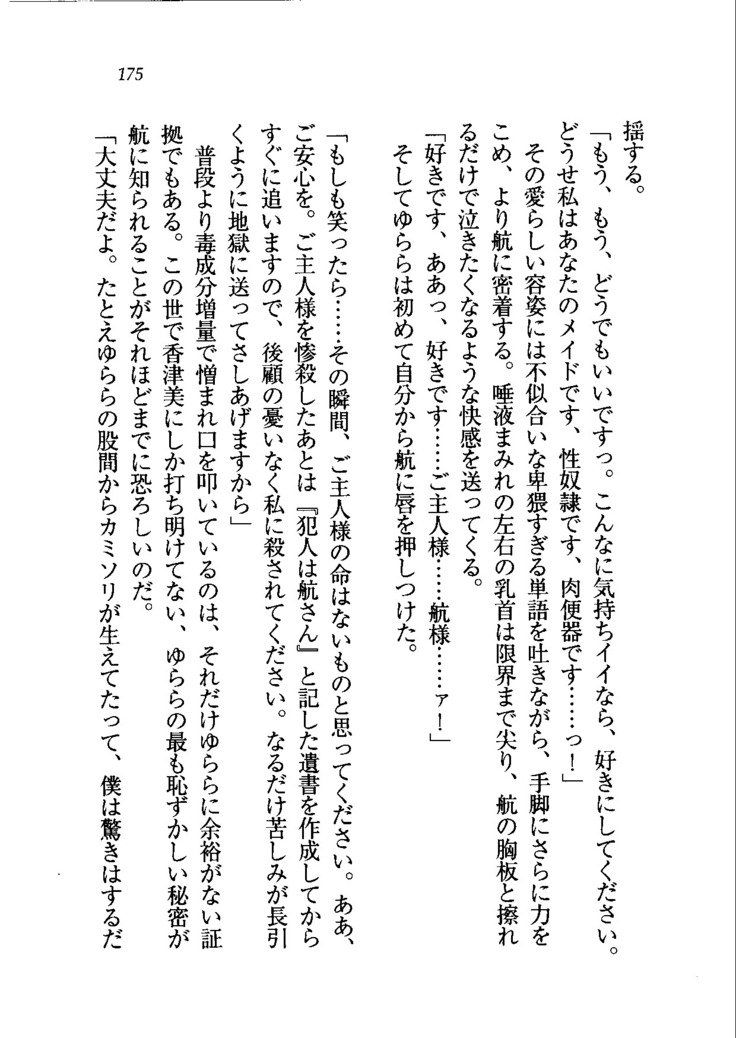 175
揺する。
「もう、もう、どうでもいいですっ。こんなに気持ちイイなら、好きにしてください。
どうせ私はあなたのメイドです、性奴隷です、肉便器です……っ！」
その愛らしい容姿には不似合いな卑猥すぎる単語を吐きながら、手脚にさらに力を
こめ、より航に密着する。唾液まみれの左右の乳首は限界まで尖り、航の胸板と擦れ
るだけで泣きたくなるような快感を送ってくる。
「好きです、ああっ、好きです……ご主人様……航様……ァ！」
そしてゆららは初めて自分から航に唇を押しつけた。
「もしも笑ったら……その瞬間、ご主人様の命はないものと思ってください。ああ、
ご安心を。ご主人様を惨殺したあとは『犯人は航さん』と記した遺書を作成してから
すぐに追いますので、後顧の憂いなく私に殺されてください。なるだけ苦しみが長引
くように地獄に送ってさしあげますから」
普段より毒成分増量で憎まれ口を叩いているのは、それだけゆららに余裕がない証
拠でもある。この世で香津美にしか打ち明けてない、ゆららの最も恥ずかしい秘密が
航に知られることがそれほどまでに恐ろしいのだ。
「大丈夫だよ。たとえゆららの股間からカミソリが生えてたって、僕は驚きはするだ